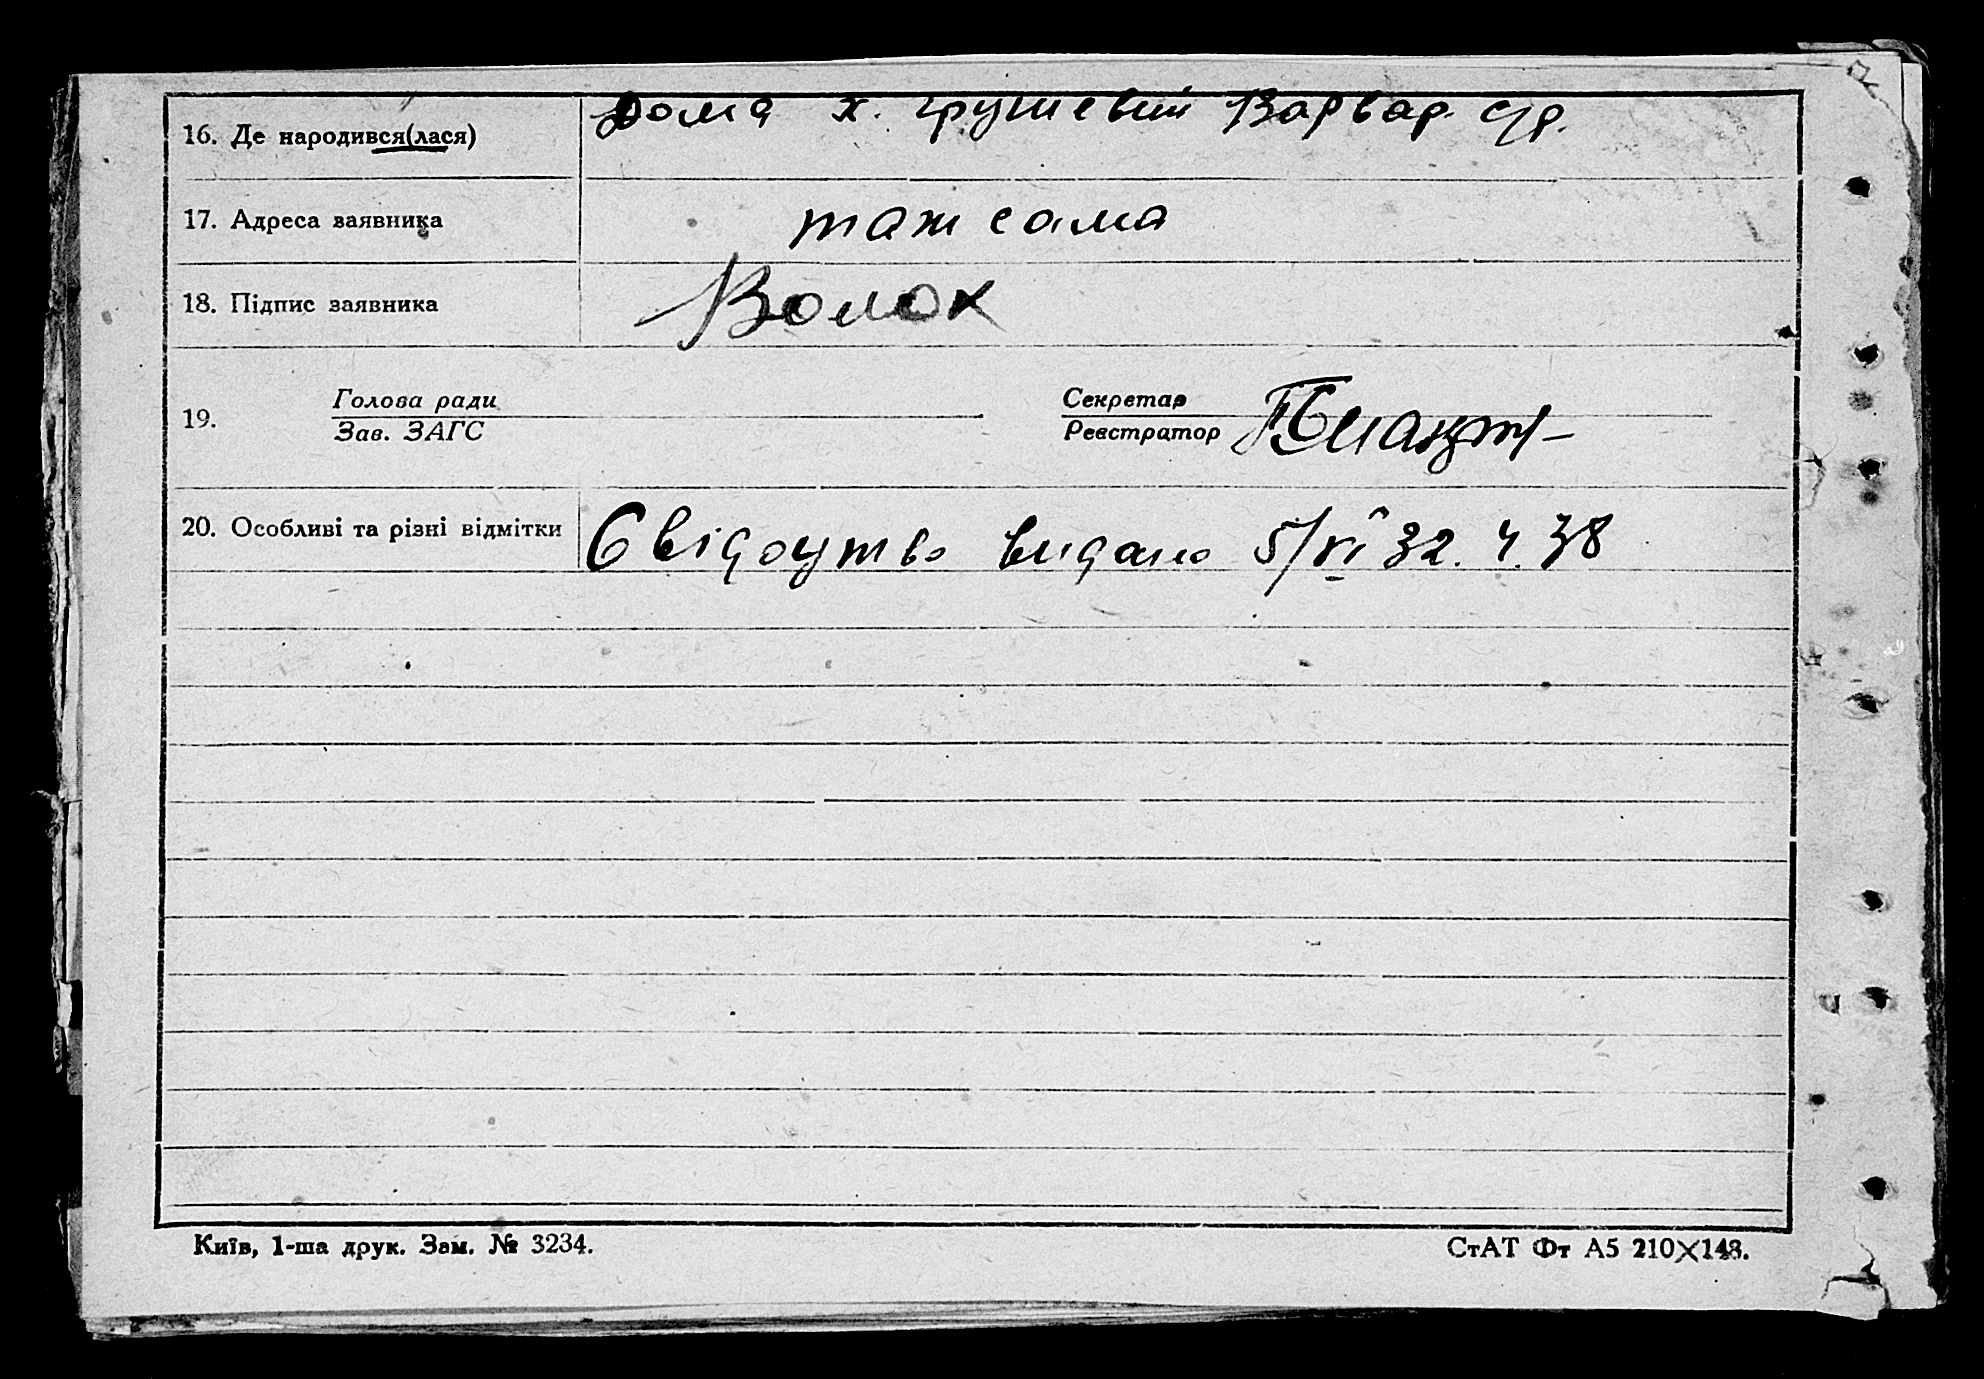 16. Де народився(лася) Дома х. Грушевий Варвар. с/р.
17. Адреса заявника таж сама
18. Підпис заявника Волок
19. Голова ради
Зав. ЗАГС
Секретар
Реєстратор
20. Особливі та різні відмітки Свідоцтво видано 5/VI 32. ч. 38
Київ, 1-ша друк. Зам. № 3234.
СтАТ Фт А5 210×148.